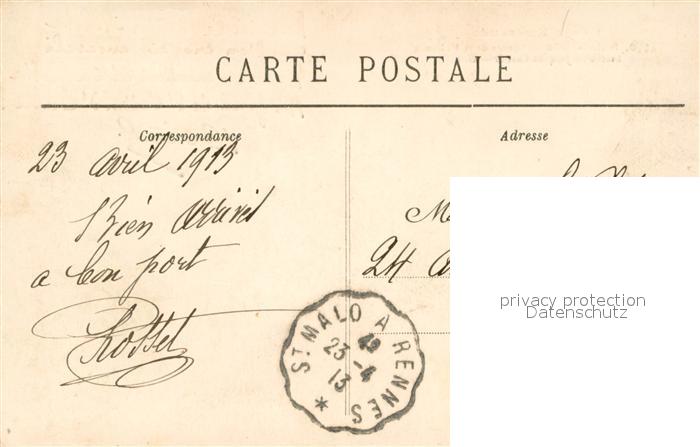 CARTE POSTALE
Correspondance
Adresse
23 avril 1913
Bien arrivés
a bon port
Rosset
M
24
privacy protection
Datenschutz
ST MALO A RENNES
23 -4
13
*